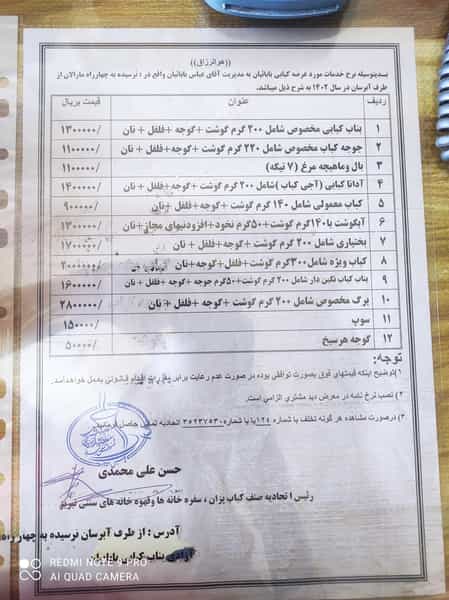 ((هوالرزاق))
بدینوسیله نرخ خدمات مورد عرضه کبابی بابائیان به مدیریت آقای عباس بابائیان واقع در : نرسیده به چهارراه مارالان از
طرف آبرسان در سال ۱۴۰۲ به شرح ذیل میباشد.
ردیف عنوان قیمت بریال
۱ بناب کبابی مخصوص شامل ۲۰۰ گرم گوشت +گوجه +فلفل + نان ۱۳۰۰۰۰۰/
۲ جوجه کباب مخصوص شامل ۲۲۰ گرم گوشت +گوجه +فلفل + نان ۱۱۰۰۰۰۰/
۳ بال وماهیچه مرغ (۷ تیکه) ۱۱۰۰۰۰۰/
۴ آدانا کبابی (آجی کباب )شامل ۲۰۰ گرم گوشت +گوجه +فلفل + نان ۱۴۰۰۰۰۰/
۵ کباب معمولی شامل ۱۴۰ گرم گوشت +گوجه +فلفل +نان ۹۰۰۰۰۰/
۶ آبگوشت با۱۴۰گرم گوشت+۵۰گرم نخود+افزودنیهای مجاز+نان ۱۳۰۰۰۰۰/
۷ بختیاری شامل ۲۰۰ گرم گوشت +گوجه +فلفل + نان ۱۷۰۰۰۰۰/
۸ کباب ویژه شامل۳۰۰گرم گوشت+فلفل+گوجه+نان ۲۰۰۰۰۰۰/
۹ بناب کباب نگین دار شامل ۲۰۰گرم گوشت+۵۰گرم جوجه +گوجه +فلفل +نان ۱۶۰۰۰۰۰/
۱۰ برگ مخصوص شامل ۲۰۰ گرم گوشت +گوجه + فلفل + نان ۲۸۰۰۰۰۰/
۱۱ سوپ ۱۵۰۰۰۰/
۱۲ گوجه هرسیخ ۵۰۰۰۰/
توجه:
۱)توضیح اینکه قیمتهای فوق بصورت توافقی بوده در صورت عدم رعایت برابر مقررات اقدام قانونی بعمل خواهدآمد.
۲) نصب نرخ نامه در معرض دید مشتری الزامی است.
۳)درصورت مشاهده هر گونه تخلف با شماره ۱۲۴یا با شماره۳۶۲۳۷۵۳۰ اتحادیه تماس حاصل فرمایید
حسن علی محمدی
رئیس اتحادیه صنف کباب پزان ، سفره خانه ها وقهوه خانه های سنتی تبریز
آدرس : از طرف آبرسان نرسیده به چهار راه
بناب کبابی
REDMI NOTE 9 PRO
AI QUAD CAMERA